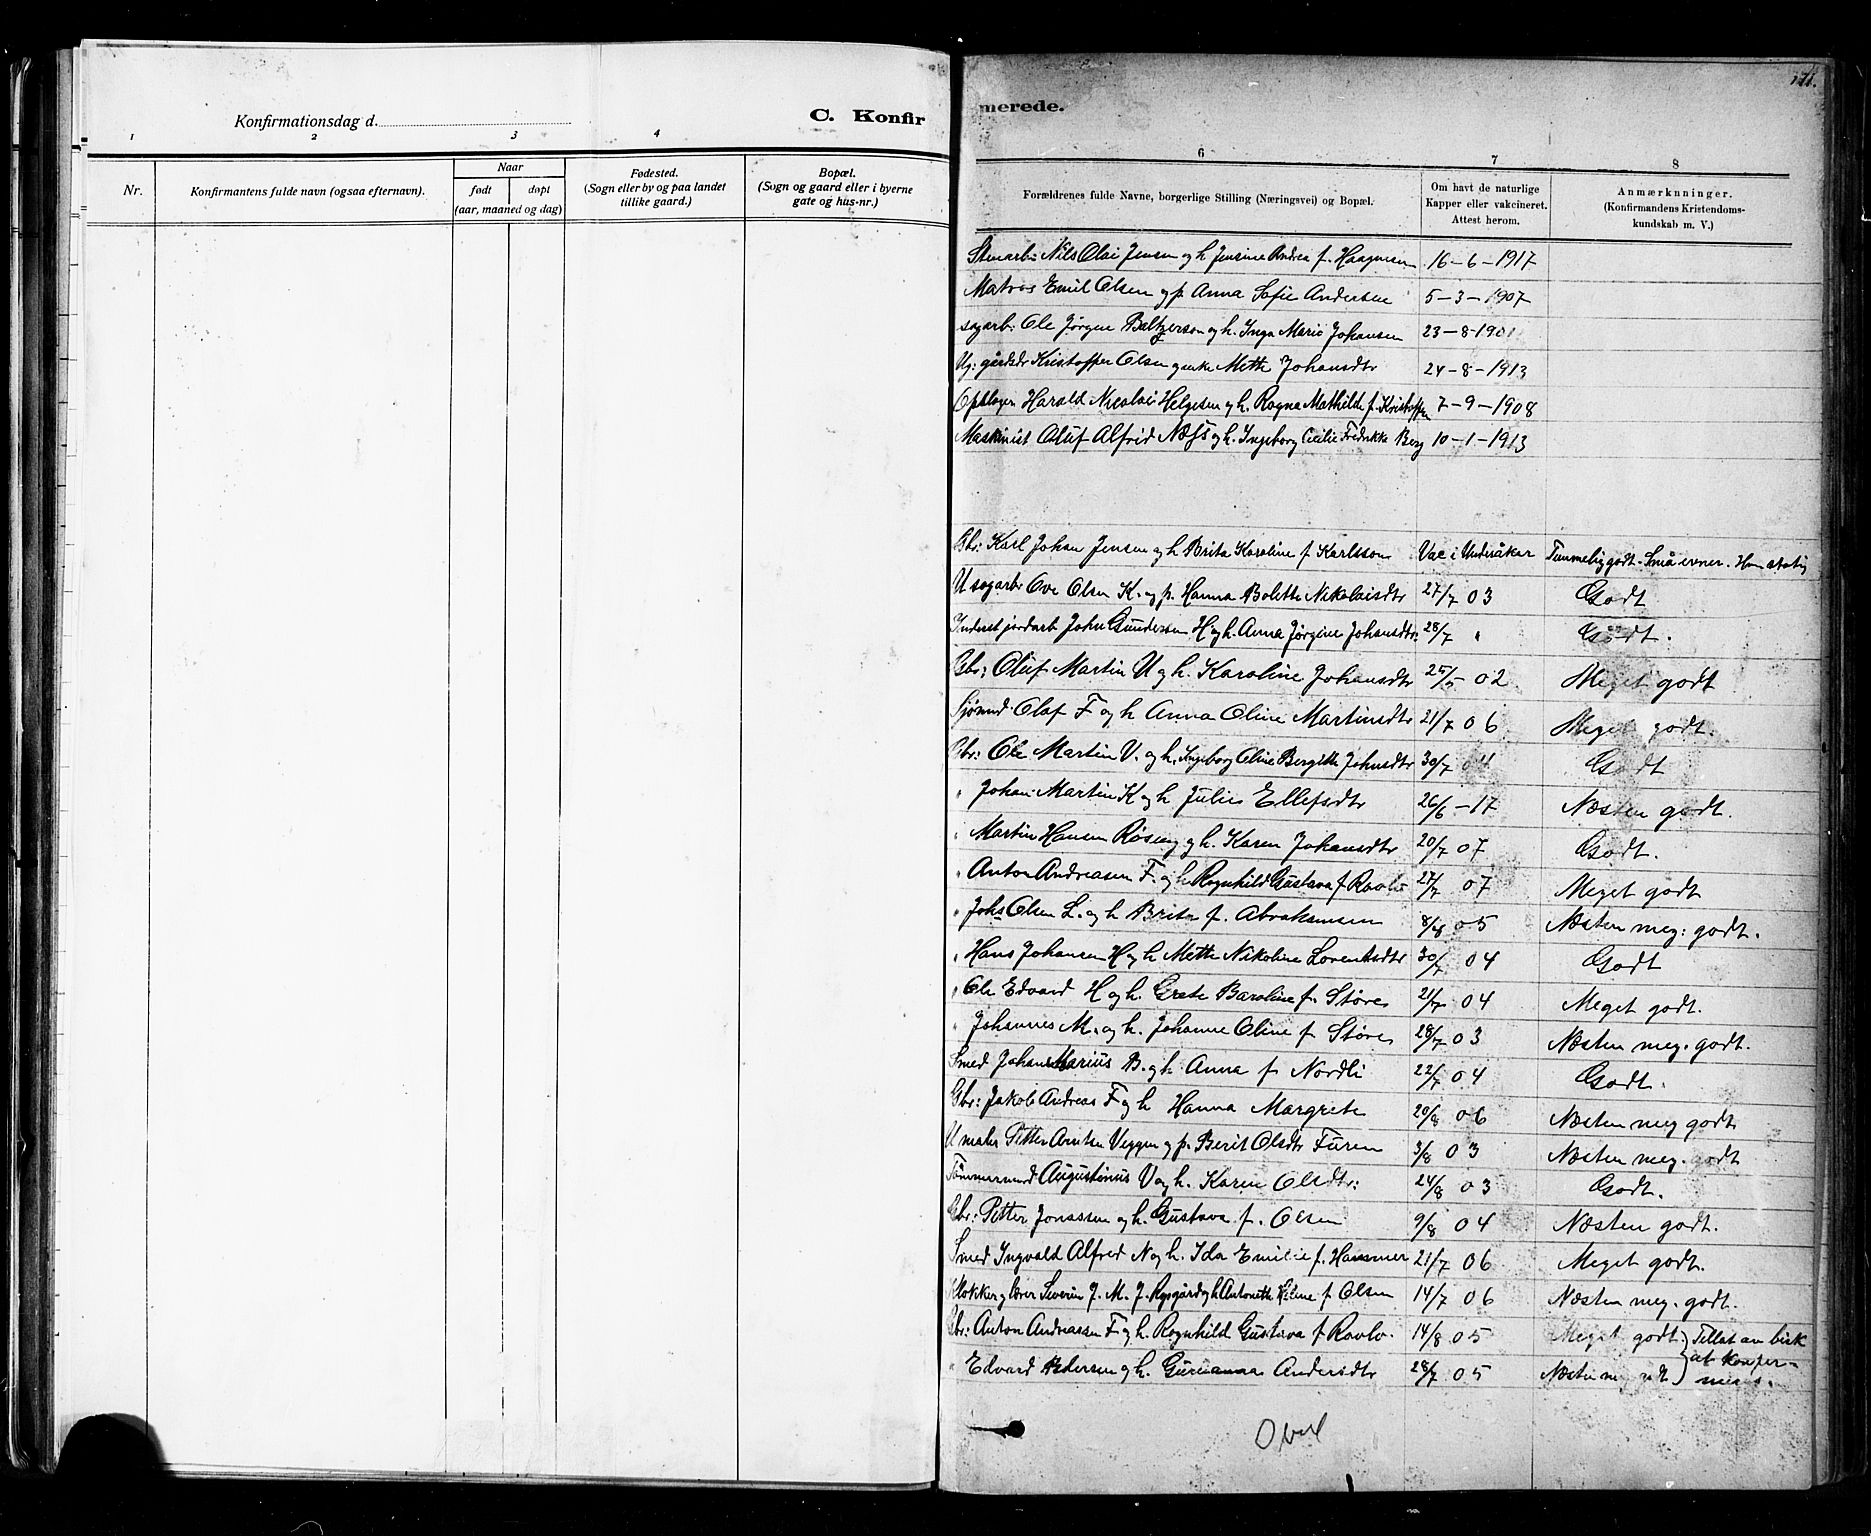 Konfirmationsdag d.
C. Konfir
1 2 3 4
Nr.
Konfirmantens fulde navn (ogsaa efternavn).
Naar
født døpt
(aar, maaned og dag)
Fødested.
(Sogn eller by og paa landet
tillike gaard.)
Bopæl.
(Sogn og gaard eller i byerne
gate og hus-nr.)
171.
merede.
6 7 8
Forældrenes fulde Navne, borgerlige Stilling (Næringsvei) og Bopæl.
Om havt de naturlige
Kapper eller vakcineret.
Attest herom.
Anmærkninger.
(Konfirmandens Kristendoms-
kundskab m. V.)
Stenarb: Nils Olai Jensen og h Jensine Andrea f. Haagensen 16-6-1917
Matros Emil Olsen og p. Anna Sofie Andersen 5-3-1907
sagarb: Ole Jørgen Baltzersen og h. Inga Marie Johansen 23-8-1901
Ug: gårdsdr Kristoffer Olsen og enke Mette Johansdtr 24-8-1913
Harald Nicolai Helgesen og h. Ragna Mathilde f. Kristoffe 7-9-1908
Maskinist Oluf Alfrid Næss og h. Ingeborg Cecilie Fredrikke Berg 10-1-1913
Gbr: Karl Johan Jensen og h Brita Karoline f Karlsson Vac i Undersåker Temmelig godt. Små evner.
U sagarb Ove Olsen K. og p. Hanna Bolette Nikolaisdtr 27/7 03 Godt
Inderst jordarb John Gundersen H og h. Anna Jørgine Johansdtr. 28/7 " Godt.
Gbr: Oluf Martin U og h. Karoline Johansdtr 25/5 02 Meget godt
Sjømd. Olaf F og h Anna Oline Martinsdtr 21/7 06 Meget godt.
Gbr: Ole Martin V. og h. Ingeborg Oline Bergitte Johnsdtr 30/7 04 Godt
" Johan Martin K og h Julie Ellefsdtr 26/6 -17 Næsten godt.
" Martin Hansen Røsing og h. Karen Johansdtr 20/7 07 Godt.
" Anton Andreasen F. og h Ragnhild Gustava f Ravlo 27/7 07 Meget godt
" Johs Olsen L. og h Brita f. Abrahamsen 8/8 05 Næsten meg: godt.
" Hans Johansen H og h Mette Nikoline Lorentsdtr 30/7 04 Godt
" Ole Edvard H og h. Grete Baroline f. Støre 21/7 04 Meget godt.
" Johannes M. og h. Johanne Oline f Støre 28/7 03 Næsten meg. godt.
Smed Johan Marius B. og h Anna f Nordli 22/7 04 Godt.
Gbr: Jakob Andreas F og h Hanna Margrete 20/8 06 Næsten meg godt
U maler Petter Arntsen Veggen og p. Berit Olsdtr Furen 3/8 03 Næsten meg. godt
Tømmermand Augustinus V og h. Karen Olsdtr: 24/8 03 Godt.
Gbr: Petter Jonassen og h. Gustava f. Olsen 9/8 04 Næsten godt.
Smed Ingvald Alfred N og h. Ida Emilie f. Hammer 21/7 06 Meget godt.
Klokker og lærer Severin J. M. J. Rygård og h Antonette Heline f Olsen 14/7 06 Næsten meg. godt.
Gbr: Anton Andreassen F og h. Ragnhild Gustava f Ravlo. 14/8 05 Meget godt Tillat av bisk
" Edvard Pedersen og h. Gurianna Andersdtr 28/7 05 Næsten meg godt at konfir-
meres.